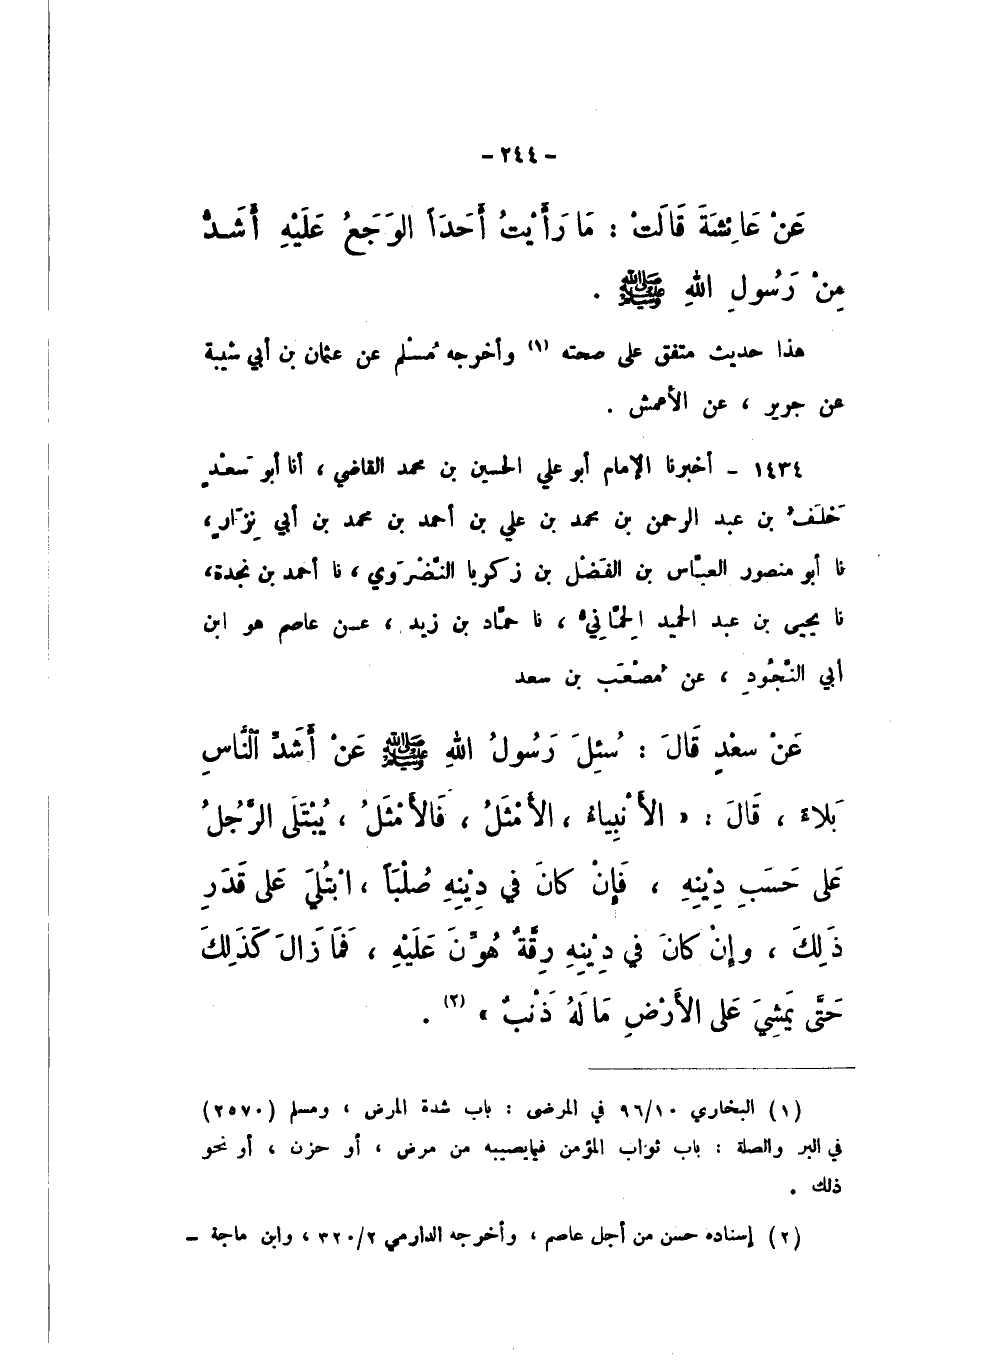 - ٢٤٤ -
عَنْ عَائِشَةَ قَالَتْ : مَا رَأَيْتُ أَحَدَاً الوَجَعُ عَلَيْهِ أَشَدُّ
مِنْ رَسُولِ اللهِ ﷺ .
هذا حديث متفق على صحته (١) وأخرجه مُسْلم عن عثمان بن أبي شيبة
عن جرير ، عن الأعمش .
١٤٣٤ - أخبرنا الإمام أبو علي الحسين بن محمد القاضي ، أنا أبو سَعْدٍ
خَلَفُ بن عبد الرحمن بن محمد بن علي بن أحمد بن محمد بن أبي نِزَارٍ ،
نا أبو منصور العبّاس بن الفَضْل بن زكريا النَّضْرَوي ، نا أحمد بن نجدة،
نا يحيى بن عبد الحميد الحِمَّانيُّ ، نا حمّاد بن زيد ، عن عاصم هو ابن
أبي النَّجُودِ ، عن مُصْعَب بن سعد
عَنْ سعْدٍ قَالَ : سُئِلَ رَسُولُ اللهِ ﷺ عَنْ أَشَدِّ النَّاسِ
بَلاءً ، قَالَ : « الأَنْبِيَاءُ ، الأَمْثَلُ ، فَالأَمْثَلُ ، يُبْتَلَى الرَّجُلُ
عَلى حَسَبِ دِيْنِهِ ، فَإِنْ كانَ في دِيْنِهِ صُلْبَاً ، ابْتُلِيَ عَلى قَدَرِ
ذَلِكَ ، وإِنْ كانَ في دِيْنِهِ رِقَّةٌ هُوِّنَ عَلَيْهِ ، فَمَا زَالَ كَذَلِكَ
حَتَّى يَمْشِيَ عَلى الأَرْضِ مَا لَهُ ذَنْبٌ » (٢) .
(١) البخاري ٩٦/١٠ في المرضى : باب شدة المرض ، ومسلم (٢٥٧٠)
في البر والصلة : باب ثواب المؤمن فيمايصيبه من مرض ، أو حزن ، أو نحو
ذلك .
(٢) إسناده حسن من أجل عاصم ، وأخرجه الدارمي ٣٢٠/٢ ، وابن ماجة -